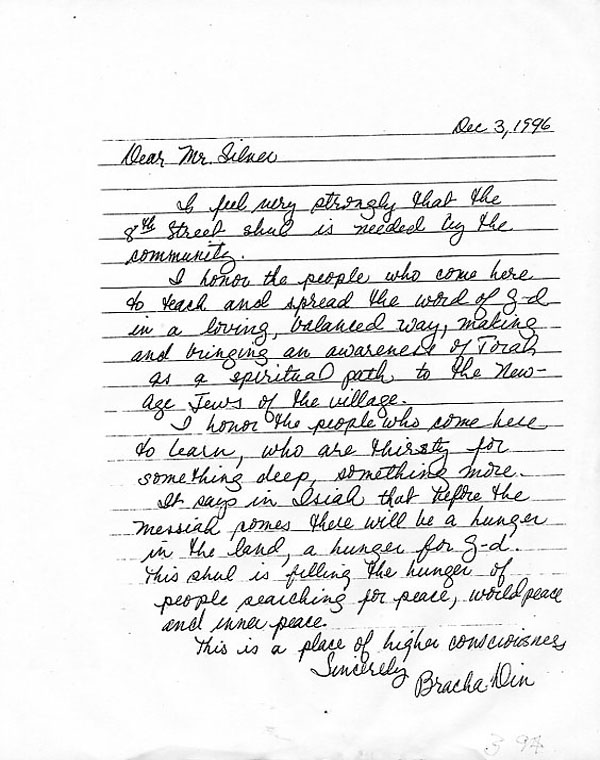 Dec 3, 1996
Dear Mr. Silver
I feel very strongly that the
8th Street shul is needed by the
community.
I honor the people who come here
to teach and spread the word of G-d
in a loving, balanced way, making
and bringing an awareness of Torah
as a spiritual path to the New-
Age Jews of the village.
I honor the people who come here
to learn, who are thirsty for
something deep, something more.
It says in Isiah that before the
Messiah comes there will be a hunger
in the land, a hunger for G-d.
This shul is filling the hunger of
people searching for peace, world peace
and inner peace.
This is a place of higher consciousness
Sincerely
Bracha Din
3 94